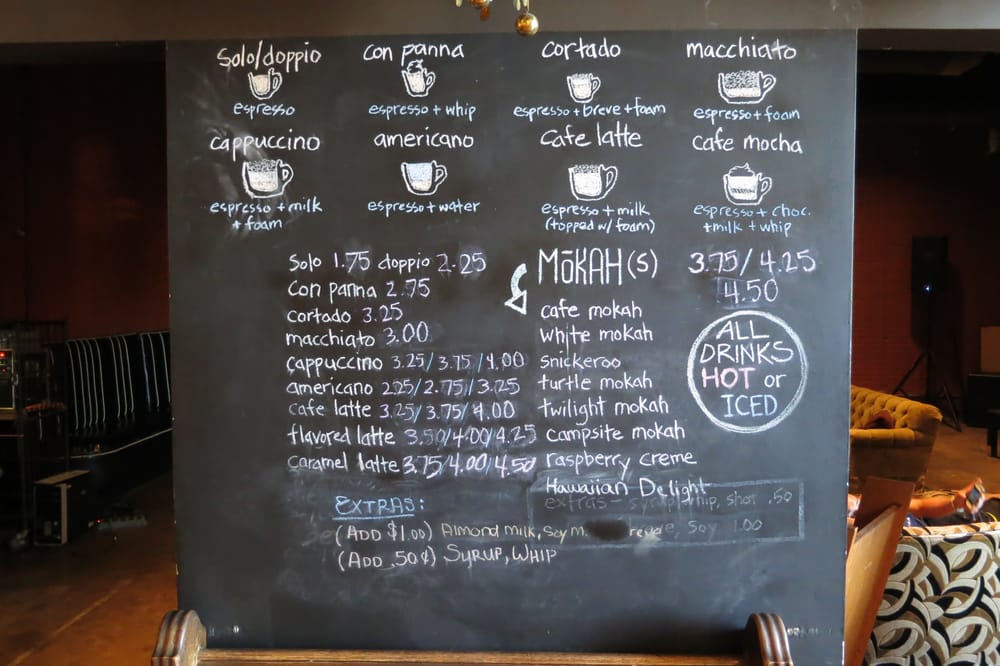 solo/doppio
espresso
con panna
espresso + whip
cortado
espresso + breve + foam
macchiato
espresso + foam
cappuccino
espresso + milk
+ foam
americano
espresso + water
cafe latte
espresso + milk
(topped w/ foam)
cafe mocha
espresso + choc.
+ milk + whip
solo 1.75 doppio 2.25
con panna 2.75
cortado 3.25
macchiato 3.00
cappuccino 3.25/3.75/4.00
americano 2.25/2.75/3.25
cafe latte 3.25/3.75/4.00
flavored latte 3.50/4.00/4.25
caramel latte 3.75/4.00/4.50
MōKAH(s) 3.75/4.25
4.50
cafe mokah
white mokah
snickeroo
turtle mokah
twilight mokah
campsite mokah
raspberry creme
Hawaiian Delight
ALL
DRINKS
HOT or
ICED
EXTRAS:
(ADD $1.00) Almond milk, Soy m
(ADD .50¢) SYRUP, WHIP
extras - syrup, whip, shot .50
soy 1.00